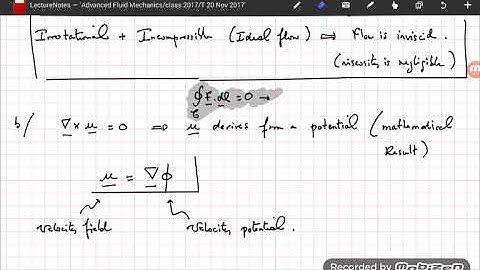 LectureNotes – 'Advanced Fluid Mechanics/class 2017/T 20 Nov 2017'
Irrotational + Incompressible (Ideal flow) ⟺ Flow is inviscid.
(viscosity is negligible)
∮ F . dl = 0 →
C
b/ ∇ × u = 0 ⟹ u derives from a potential (mathematical
Result)
u = ∇ϕ
velocity field velocity potential.
Recorded by